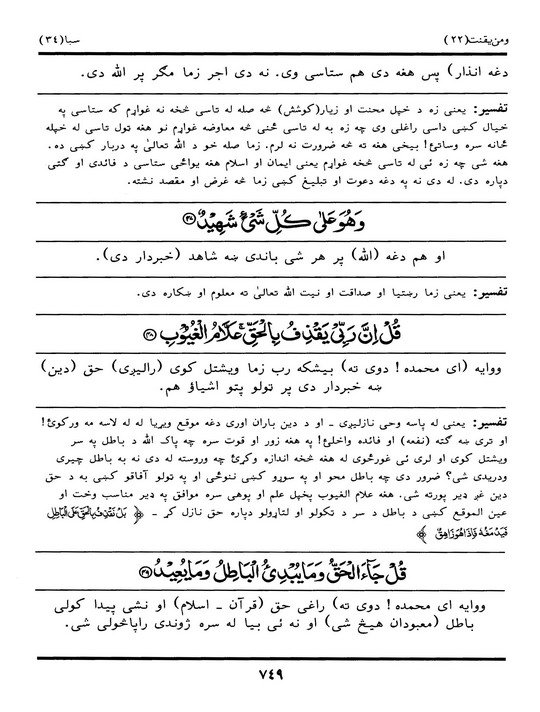 ومن يقنت(٢٢) سبا(٣٤)
دغه انذار) پس هغه دی هم ستاسې وی. نه دی اجر زما مګر پر الله دی.
تفسیر: یعنی زه د خپل محنت او زیار(کوشش) څه صله له تاسې څخه نه غواړم که ستاسې په
خیال کښې داسې راغلی وی چه زه به له تاسې ځنې څه معاوضه غواړم نو هغه ټول تاسې له خپله
ځانه سره وساتئ! بیخی هغه ته څه ضرورت نه لرم. زما صله خو د الله تعالیٰ په دربار کښې ده.
هغه شی چه زه ئې له تاسې څخه غواړم یعنی ایمان او اسلام هغه یوائې ستاسې د فائدې او ګټې
دپاره دی. له دی نه په دغه دعوت او تبلیغ کښې زما څه غرض او مقصد نشته.
وَهُوَ عَلٰى كُلِّ شَىْءٍ شَهِيْدٌ ﴿٤٧﴾
او هم دغه (الله) پر هر شی باندې ښه شاهد (خبردار دی).
تفسیر: یعنی زما رښتیا او صداقت او نیت الله تعالیٰ ته معلوم او ښکاره دی.
قُلْ اِنَّ رَبِّىْ يَقْذِفُ بِالْحَقِّ عَلَّامُ الْغُيُوْبِ ﴿٤٨﴾
ووایه (ای محمده! دوی ته) بیشکه رب زما ویشتل کوی (رالیږی) حق (دین)
ښه خبردار دی پر ټولو پټو اشیاؤ هم.
تفسیر: یعنی له پاسه وحی نازلیږی ـ او د دین باران اوری دغه موقع ویړیا له لاسه مه ورکوئ!
او تری ښه ګټه (نفعه) او فائده واخلئ! په هغه زور او قوت سره چه پاک الله د باطل په سر
ویشتل کوی او لری ئې غورځوی له هغه څخه اندازه وکړئ چه وروسته له دی نه به باطل چیری
ودریدی شی؟ ضرور دی چه باطل محو او په سوړو کښې ننوځی او په ټولو آفاقو کښې به د حق
دین غږ ډیر پورته شی. هغه علام الغیوب پخپل علم او پوهې سره موافق په ډیر مناسب وخت او
عین الموقع کښې د باطل د سر د ټکولو او لتاړولو دپاره حق نازل کړ ـ ﴿ بَلْ نَقْذِفُ بِالْحَقِّ عَلَى الْبَاطِلِ
فَيَدْمَغُهٗ فَاِذَا هُوَ زَاهِقٌ ﴾
قُلْ جَآءَ الْحَقُّ وَمَا يُبْدِئُ الْبَاطِلُ وَمَا يُعِيْدُ ﴿٤٩﴾
ووایه ای محمده! دوی ته) راغی حق (قرآن ـ اسلام) او نشی پیدا کولی
باطل (معبودان هیڅ شی) او نه ئې بیا له سره ژوندی راپاڅولی شی.
٧٤٩